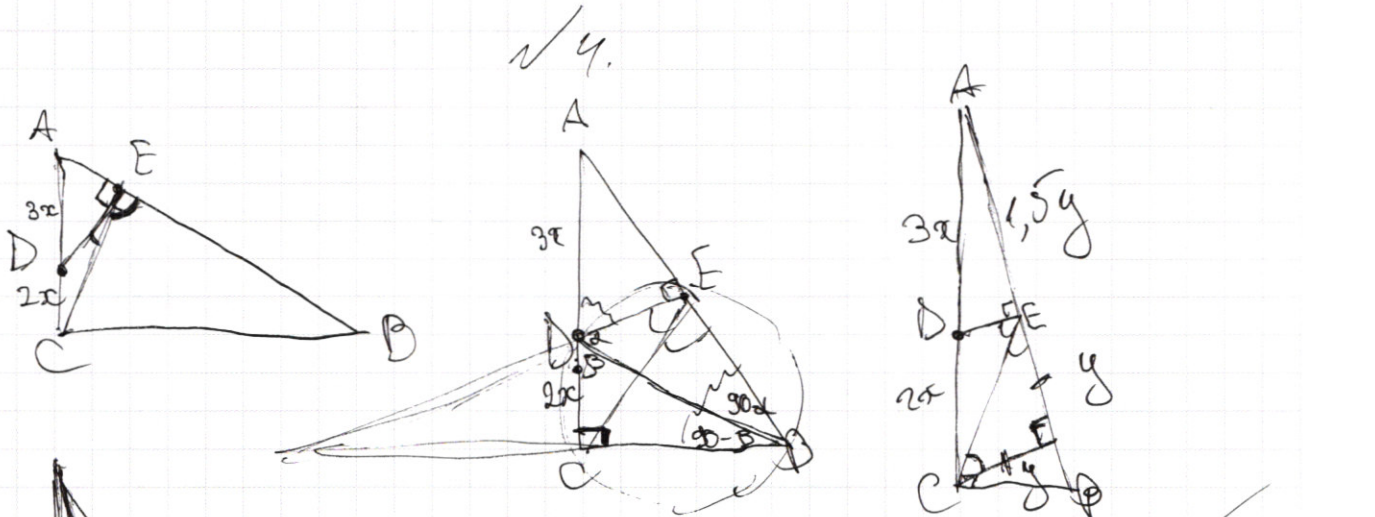 √4.
A
E
3x
D
2x
C
B
A
3x
E
D
α
β
2x
90-α
90-β
C
B
A
3x
1,5y
D
E
2x
y
F
y
C
B